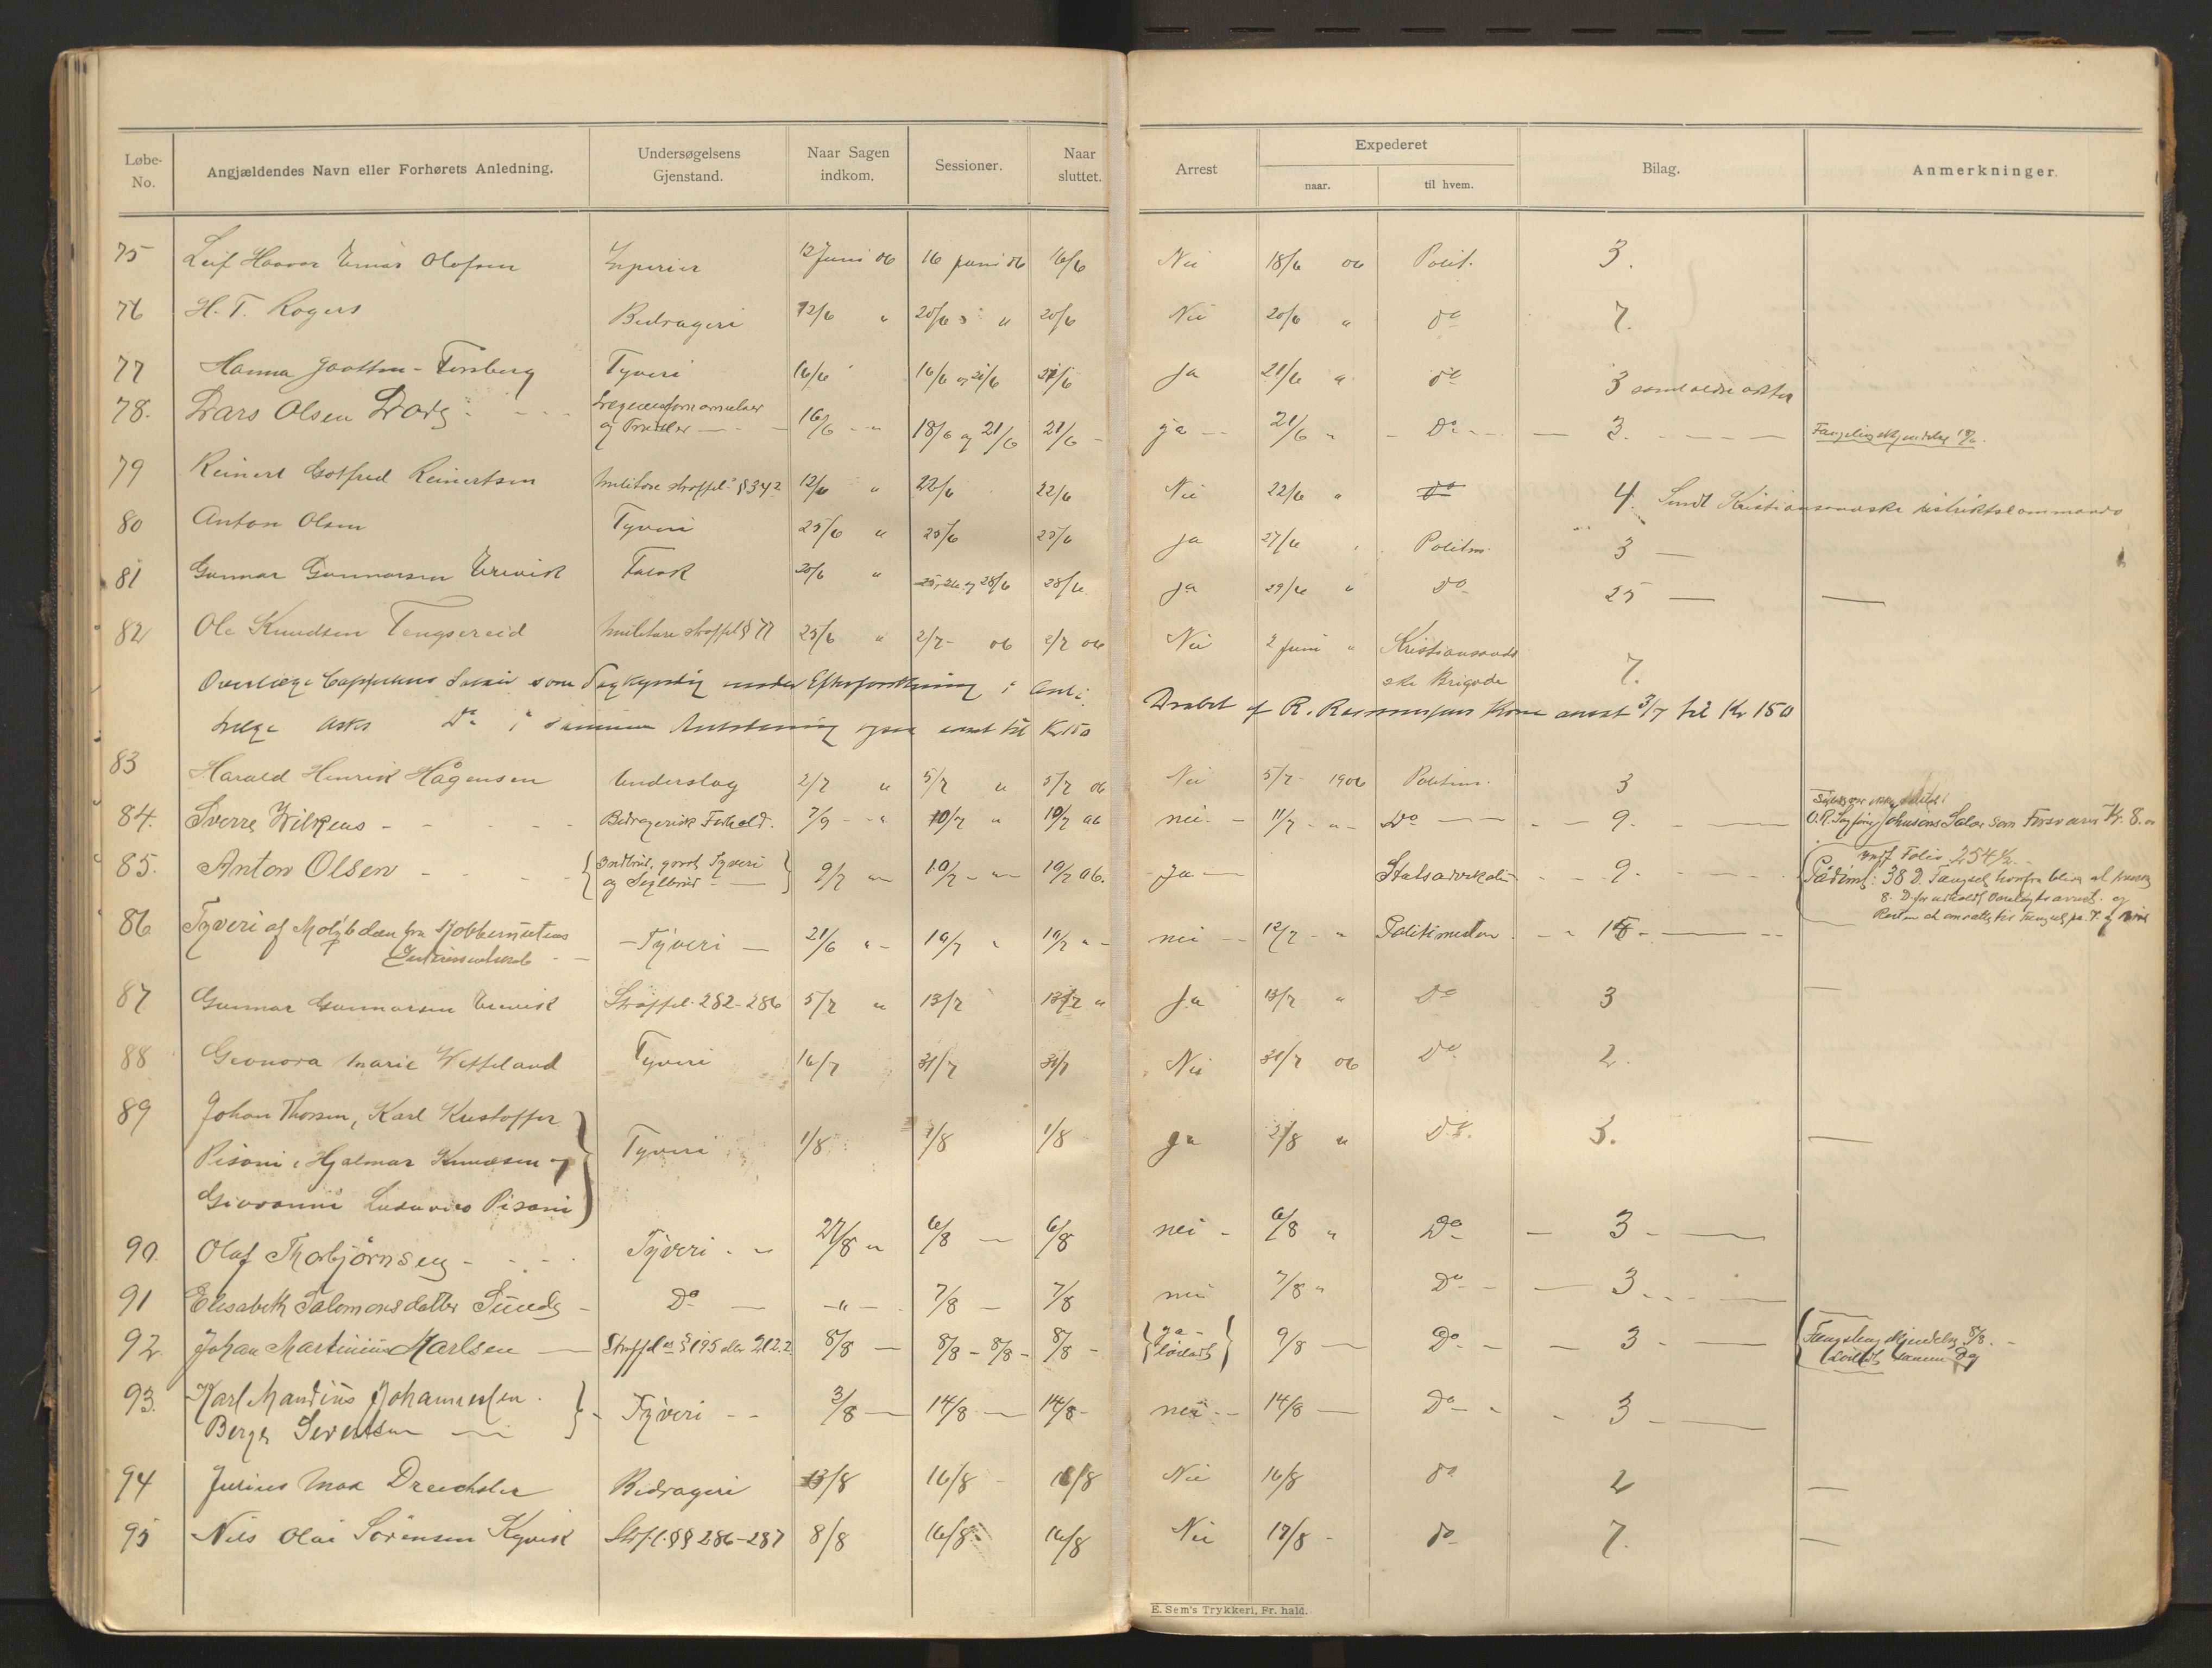 Løbe-No. Angjældendes Navn eller Forhørets Anledning. Undersøgelsens Gjenstand. Naar Sagen indkom. Sessioner. Naar sluttet. Arrest Expederet naar. til hvem. Bilag. Anmerkninger.
75 Leif Olofsen 12 Juni 06 16 juni 06 16/6 Nei 18/6 06 Polit. 3.
76 H. T. Rogers Bedrageri 12/6 " 20/6 " 20/6 Nei 20/6 " do 7.
77 Hanna Tyveri 16/6 16/6 og 21/6 21/6 Ja 21/6 " do 3
78. Lars Olsen og Trusler 16/6 - " 18/6 og 21/6 21/6 - ja - 21/6 " - Do - 3. Fængslingskjendelse 18/6.
79 Reinert Gotfred Reinertsen militære straffel. § 34 2 12/6 " 22/6 22/6 Nei 22/6 " do 4. Sendt Kristianssandske distriktskommando
80 Anton Olsen Tyveri 25/6 " 25/6 25/6 Ja 27/6 Politm. 3 —
81 Gunnar Gunnarsen Falsk 20/6 " 25, 26 og 28/6 28/6 Ja 29/6 " Do 25 — —
82 Ole Knudsen Tengsereid militære straffel § 77 25/6 " 2/7 - 06 2/7 06 Nei 2 juni " Kristianssands
ske Brigade 7.
Overlæge Cappelens Salær som Sagkyndig under Efterforskning i Anl: Drabet af R. Rasmussens Kone anvist 3/7 til Kr 150
Læge Asks Do i samme Anledning ogsaa anvist til Kr 150
83 Harald Henrik Hågensen Underslag 2/7 " 5/7 " 5/7 06 Nei 5/7 - 1906 Politim. 3
84. Sverre Wilkens - Bedragerisk Forhold. 7/9 - " 10/7 " 10/7 06 nei. - 11/7 - " - Do - 9. - O.R. Sagfører Johnsens Salær som Forsvarer Kr. 8.
85. Anton Olsen - Indbrud, grovt Tyveri
og Seglbrud 9/7 " 10/7 - " 10/7 06. Ja - Statsadvokaten - 9. - Folio 254 1/2
Pådømt: 38 D. Fængsel hvorfra bliver at fradrag
8. D. for udholdt Varetægtsarrest. og
Resten at omsættes til Fængsel paa V. og Brød
86 Tyveri af Molybdæn fra Kobbernutens - Tyveri - 21/6 " - 10/7 " 10/7 " - nei - 12/7 - " Politimesteren - 18 -
87 Gunnar Gunnarsen Straffel. 282-286 5/7 " 13/7 13/7 " Ja 13/7 " Do 3 —
88 Marie Tyveri 16/7 31/7 31/7 Nei 31/7 06 Do 2.
89 Johan Thorsen, Karl Kristoffer
Pisoni, Hjalmar Knudsen og Tyveri 1/8 1/8 1/8 Ja 2/8 " Do. 3. —
Giovanni Ludovico Pisoni
90. Olaf Thorbjørnsen - Tyveri - " 27/8 " 6/8 — 6/8 nei - 6/8 " Do - 3 -
91 Elisabeth Salomonsdatter Do — - " - 7/8 — 7/8 nei 7/8 " Do - 3 -
92. Johan Martinius Karlsen — Straffel § 195 eller 212.2 8/8 — 8/8 - 8/8 - 8/8 - ja -
løsladt 9/8 — Do - 3 - Fængslingskjendelse 8/8. -
Løsladt samme Dag
93. Karl Mandius Johannessen.
Berge Severtsen - Tyveri - - 3/8 — 14/8 — 14/8 - nei - 14/8 — Do - 3 -
94 Julius Max Drechsler Bedrageri 13/8 16/8 - 16/8 Nei 16/8 do 2 —
95 Nils Olai Sørensen Kyvik Strfl. §§ 286-287 8/8 16/8 16/8 Nei 17/8 - do 7. —
E. Sem's Trykkeri, Fr. hald.